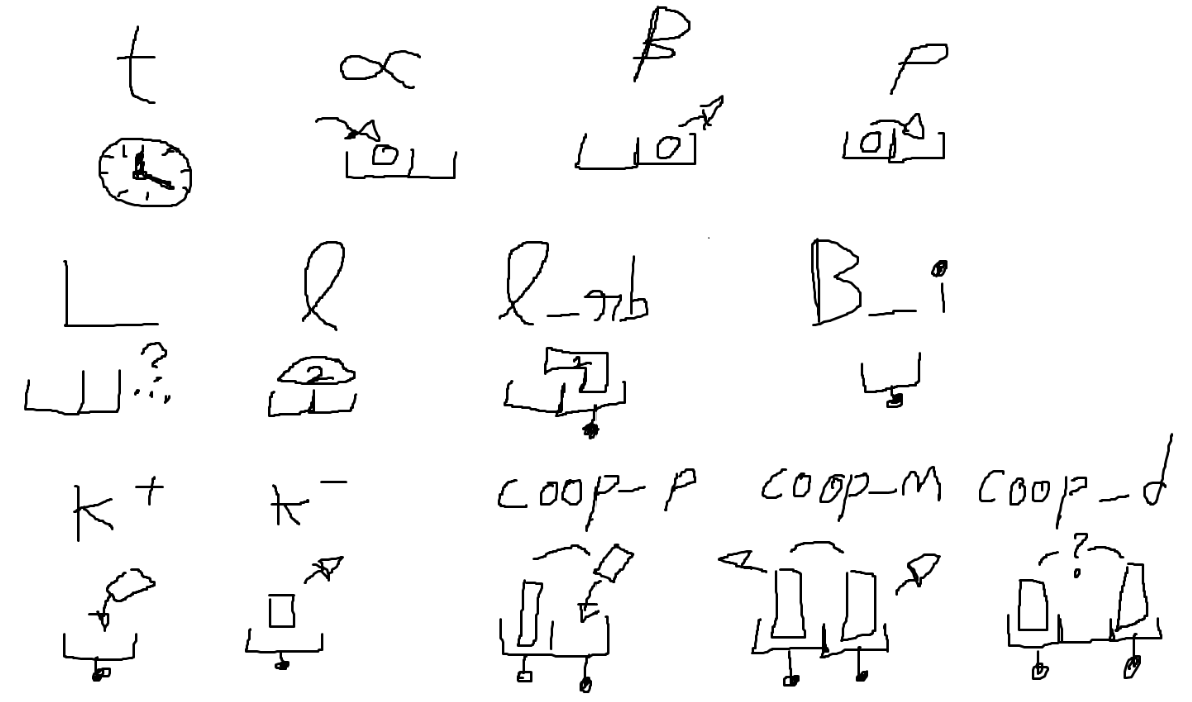 t α β ρ
L l l_rb B_i
? 2 2
k+ k- coop_p coop_m coop_d
?